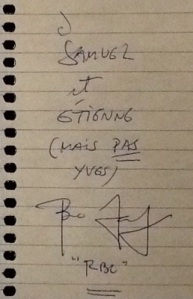 à
SAMUEL
et
ETIENNE
(MAIS PAS
YVES)
"RBC"